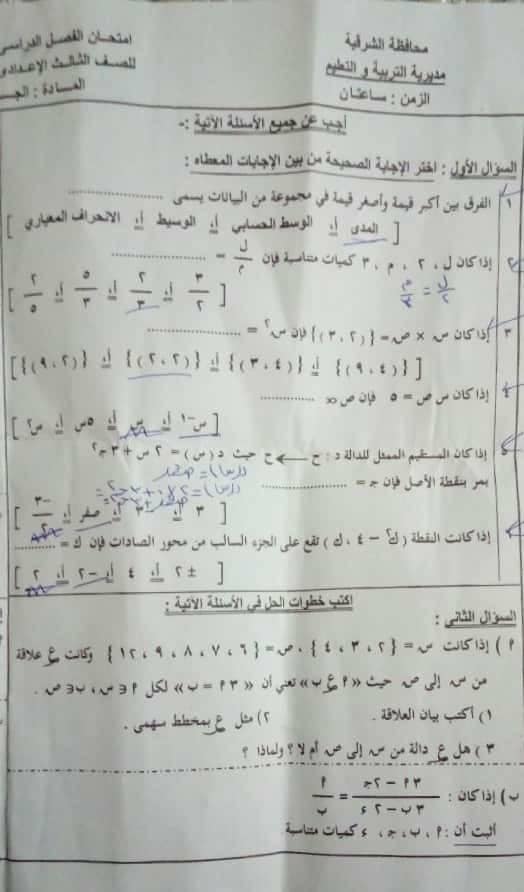 محافظة الشرقية
مديرية التربية و التعليم
الزمن : ساعتان
امتحان الفصل الدراسى
للصف الثالث الإعدادى
المادة : الجـ
أجب عن جميع الأسئلة الآتية :-
السؤال الأول : اختر الإجابة الصحيحة من بين الإجابات المعطاه :
١ الفرق بين أكبر قيمة وأصغر قيمة في مجموعة من البيانات يسمى ..................
[ المدى أ، الوسط الحسابي أ، الوسيط أ، الانحراف المعياري ]
٢ إذا كان ل ، ٢ ، م ، ٣ كميات متناسبة فإن ل/م = ..................
ل/٢ = م/٣
[ ٣/٢ أ، ٢/٣ أ، ٥/٣ أ، ٢/٥ ]
٣ إذا كان س × ص = {(٢ ، ٣)} فإن س٢ = ..................
[ {(٤ ، ٩)} أ، {(٣ ، ٤)} أ، {(٢ ، ٢)} أ، {(٢ ، ٩)} ]
٤ إذا كان س ص = ٥ فإن ص ∝ ............
[ س-١ أ، س أ، ٥س أ، س٢ ]
٥ إذا كان المستقيم الممثل للدالة د : ح ← ح حيث د ( س ) = ٢ س + ٣ جـ
يمر بنقطة الأصل فإن جـ = ..................
د(س) = صفر
[ ٣ أ، ٢ أ، صفر أ، -٣/٢ ]
إذا كانت النقطة ( ك٢ - ٤ ، ك ) تقع على الجزء السالب من محور الصادات فإن ك = ............
[ ± ٢ أ، ٤ أ، -٢ أ، ٢ ]
اكتب خطوات الحل في الأسئلة الآتية :
السؤال الثانى :
أ ) إذا كانت س = {٢ ، ٣ ، ٤} ، ص = {٦ ، ٧ ، ٨ ، ٩ ، ١٢} وكانت ع علاقة
من س إلى ص حيث «أ ع ب» تعني أن «٣أ = ب» لكل أ ∈ س ، ب ∈ ص .
١) أكتب بيان العلاقة . ٢) مثل ع بمخطط سهمى .
٣ ) هل ع دالة من س إلى ص أم لا ؟ ولماذا ؟
ب ) إذا كان : (٣أ - ٢جـ)/(٣ب - ٢ء) = أ/ب
أثبت أن : أ ، ب ، جـ ، ء كميات متناسبة